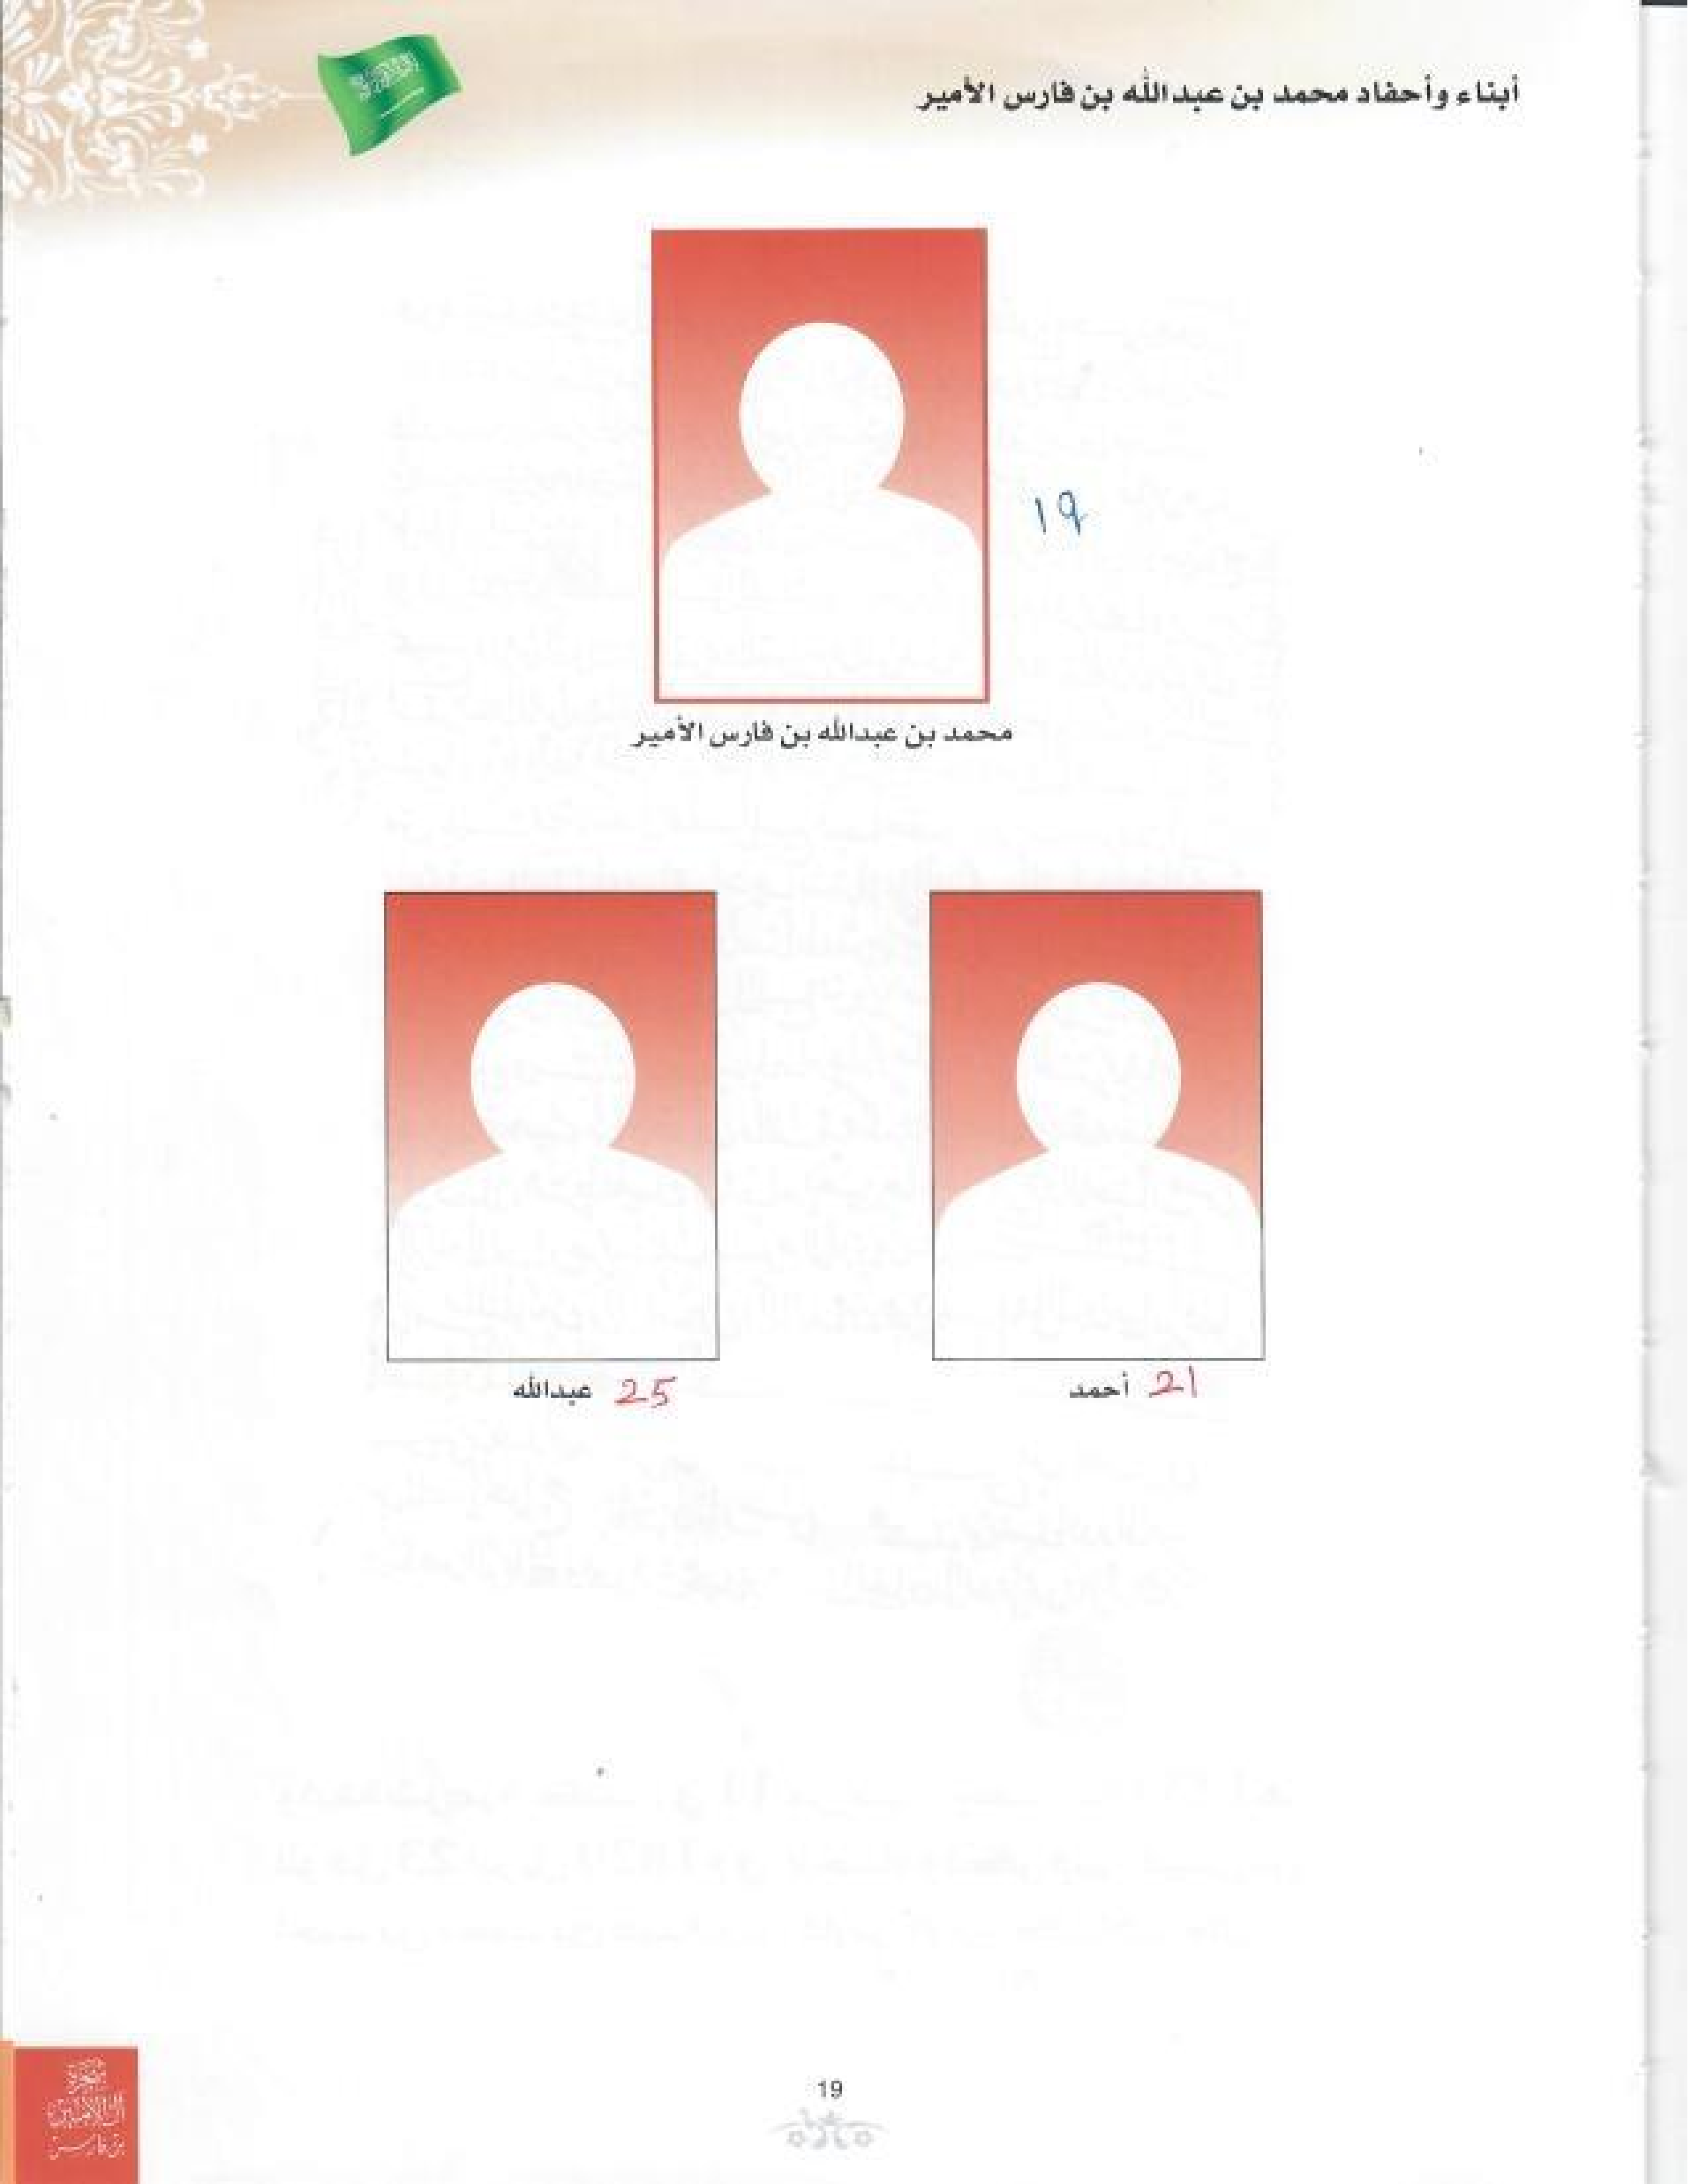 أبناء وأحفاد محمد بن عبدالله بن فارس الأمير
19
محمد بن عبدالله بن فارس الأمير
21 أحمد
25 عبدالله
19
شجرة
آل الأمير
بن فارس